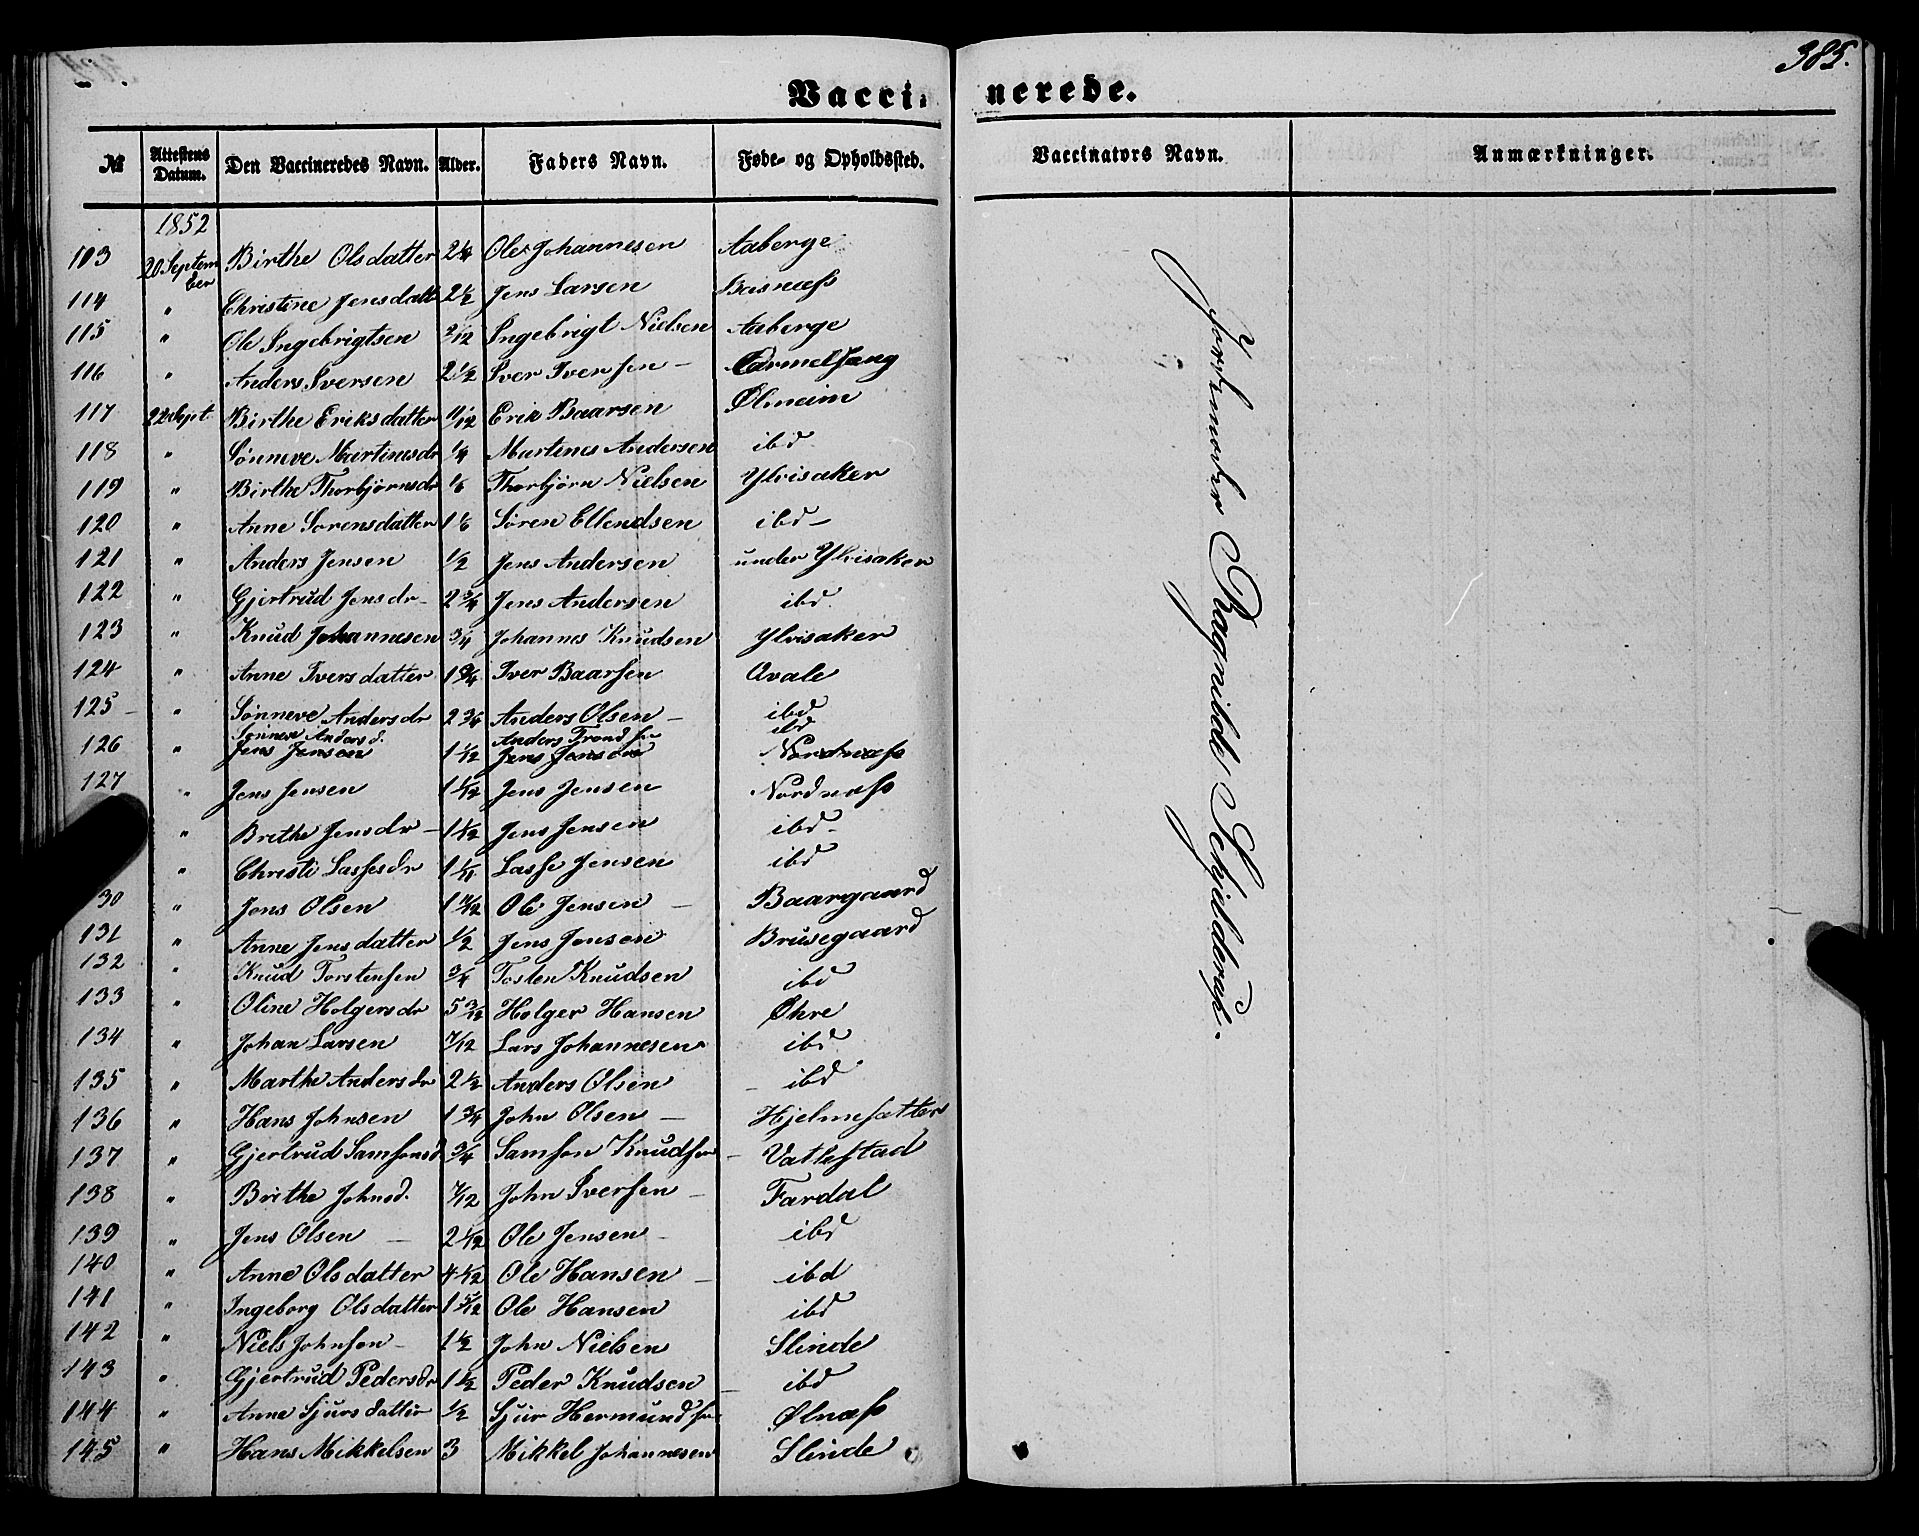 385.
Vaccinerede.
№ Attestens Datum. Den Vaccineredes Navn. Alder. Faders Navn. Føde- og Opholdssted. Vaccinators Navn. Anmærkninger.
1852
113 20 September Birthe Olsdatter 2 1/4 Ole Johannesen Aaberge
114 " Christine Jensdatt 2 1/2 Jens Larsen Basnæss
115 " Ole Ingebrigtsen 2/12 Ingebrigt Nielsen Aaberge
116 " Anders Iversen 2 1/2 Iver Iversen –
117 22 Sept. Birthe Eriksdatter 11/12 Erik Baarsen Ølmeim
118 " Sønneve Martinesdr 1/4 Martines Andersen ibd
119 " Birthe Thorbjørnsdr 1/6 Thorbjørn Nielsen Ylvisaker
120 " Anne Sorensdatter 1 1/6 Søren Ellendsen ibd –
121 " Anders Jensen 1/2 Jens Andersen under Ylvisaker
122 " Gjertrud Jensdr – 2 3/4 Jens Andersen ibd.
123 " Knud Johannesen 3/4 Johannes Knudsen Ylvisaker
124 " Anne Iversdatter 1 3/4 Iver Baarsen Qvale
125 – " Sønneve Andersdr 2 3/4 Anders Olsen – ibd
Sønneve Andersd. Anders Trondsen ibd
126 " Jens Jensen 1 1/12 Jens Jensen Nordnæss
127 " Jens Jensen 1 1/12 Jens Jensen Nordnæss
" Brithe Jensdr – 1 1/12 Jens Jensen ibd –
" Christi Lassesdr 1 Lasse Jensen ibd
30 " Jens Olsen 1 Ole Jensen – Baargaard
131 " Anne Jensdatter 1/2 Jens Jensen Brusegaard
132 " Knud Torstensen 3/4 Tosten Knudsen ibd
133 " Oline Holgersdr 5 3/12 Holger Hansen Øhre
134 " Johan Larsen 7/12 Lars Johannesen ibd
135 " Marthe Andersdr 2 1/2 Anders Olsen – ibd
136 " Hans Johnsen 1 3/4 John Olsen – Hjelmesætter
137 " Gjertrud Samsonsd 3/4 Samson Knudsen – Vatlestad
138 " Brithe Johnsd. 7/12 John Iversen – Fardal
139 " Jens Olsen – 2 1/12 Ole Jensen – ibd
140 " Anne Olsdatter 4 1/12 Ole Hansen – ibd
141 " Ingeborg Olsdatter 1 5/12 Ole Hansen ibd
142 " Niels Johnson – 1 1/2 John Nielsen Slinde
143 " Gjertrud Pedersdr 1 1/2 Peder Knudsen – ibd
144 " Anne Sjursdatter 1/2 Sjur Hermundsen Ølnæss
145 " Hans Mikkelsen 3 Mikkel Johannesen Slinde
Jordemoder Ragnilde Schjelderup.